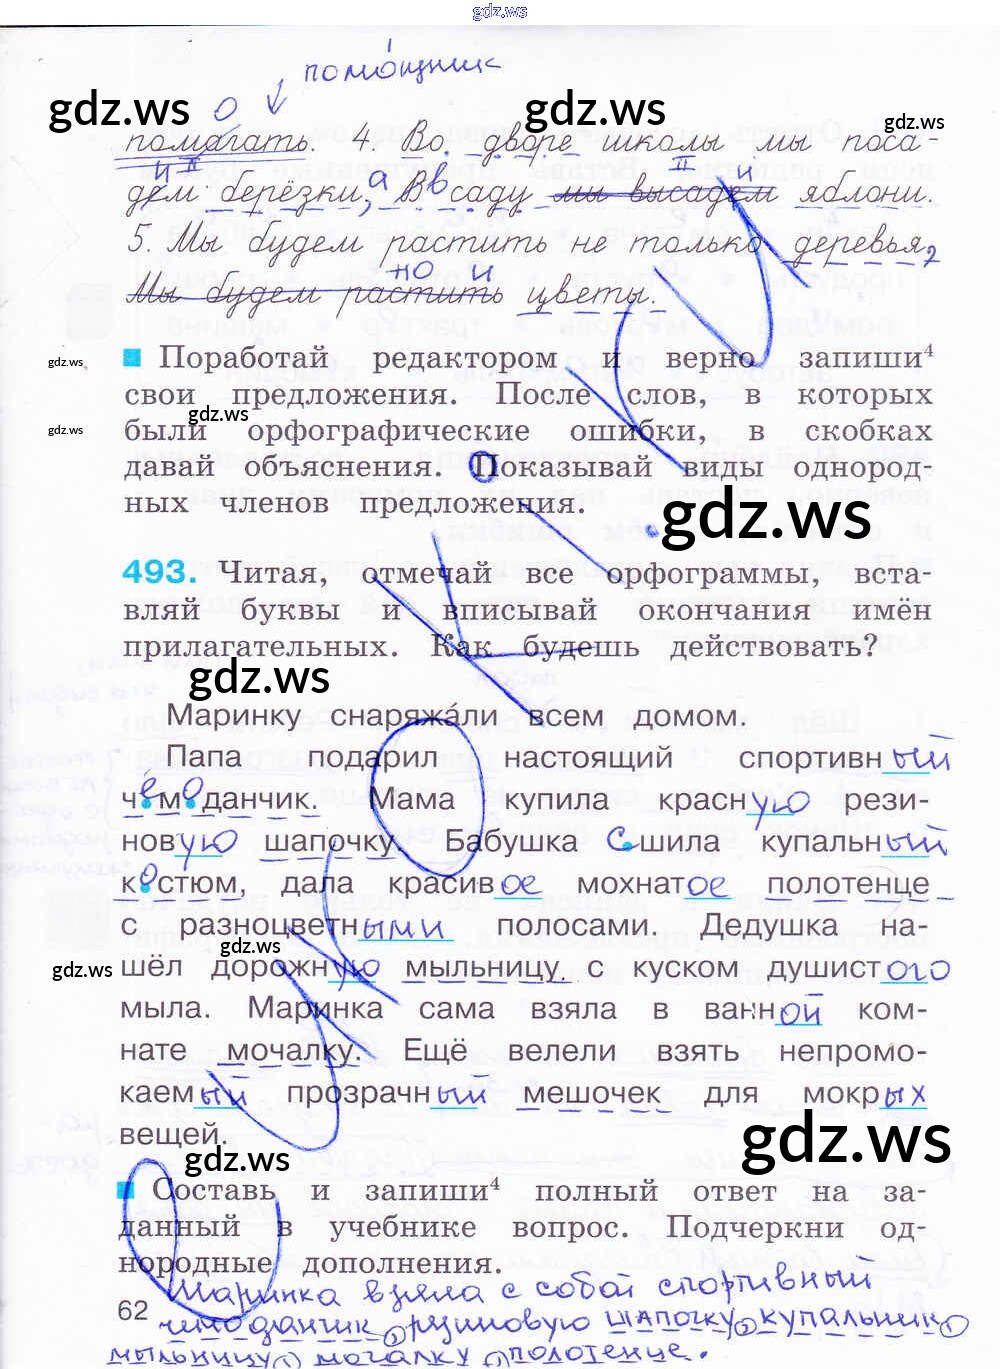 gdz.ws
помощник
gdz.ws gdz.ws gdz.ws
помогать. 4. Во дворе школы мы поса-
дим берёзки, а в саду мы высадем яблони.
5. Мы будем растить не только деревья,
но и
Мы будем растить цветы.
Поработай редактором и верно запиши⁴
gdz.ws
свои предложения. После слов, в которых
gdz.ws
были орфографические ошибки, в скобках
gdz.ws
давай объяснения. Показывай виды однород-
ных членов предложения.
gdz.ws
493. Читая, отмечай все орфограммы, вста-
вляй буквы и вписывай окончания имён
прилагательных. Как будешь действовать?
gdz.ws
Маринку снаряжа́ли всем домом.
Папа подарил настоящий спортивный
чемоданчик. Мама купила красную рези-
новую шапочку. Бабушка сшила купальный
костюм, дала красивое мохнатое полотенце
с разноцветными полосами. Дедушка на-
gdz.ws
шёл дорожную мыльницу с куском душистого
gdz.ws
мыла. Маринка сама взяла в ванной ком-
нате мочалку. Ещё велели взять непромо-
каемый прозрачный мешочек для мокрых
вещей.
gdz.ws
gdz.ws
Составь и запиши⁴ полный ответ на за-
данный в учебнике вопрос. Подчеркни од-
нородные дополнения.
Маринка взяла с собой спортивный
62
чемоданчик, резиновую шапочку, купальник,
мыльницу, мочалку, полотенце.